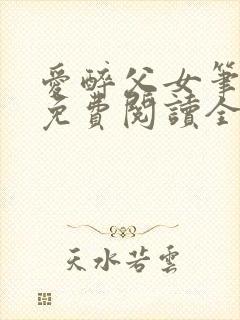 愛醉父女筆
免費閱讀全
天水若雲